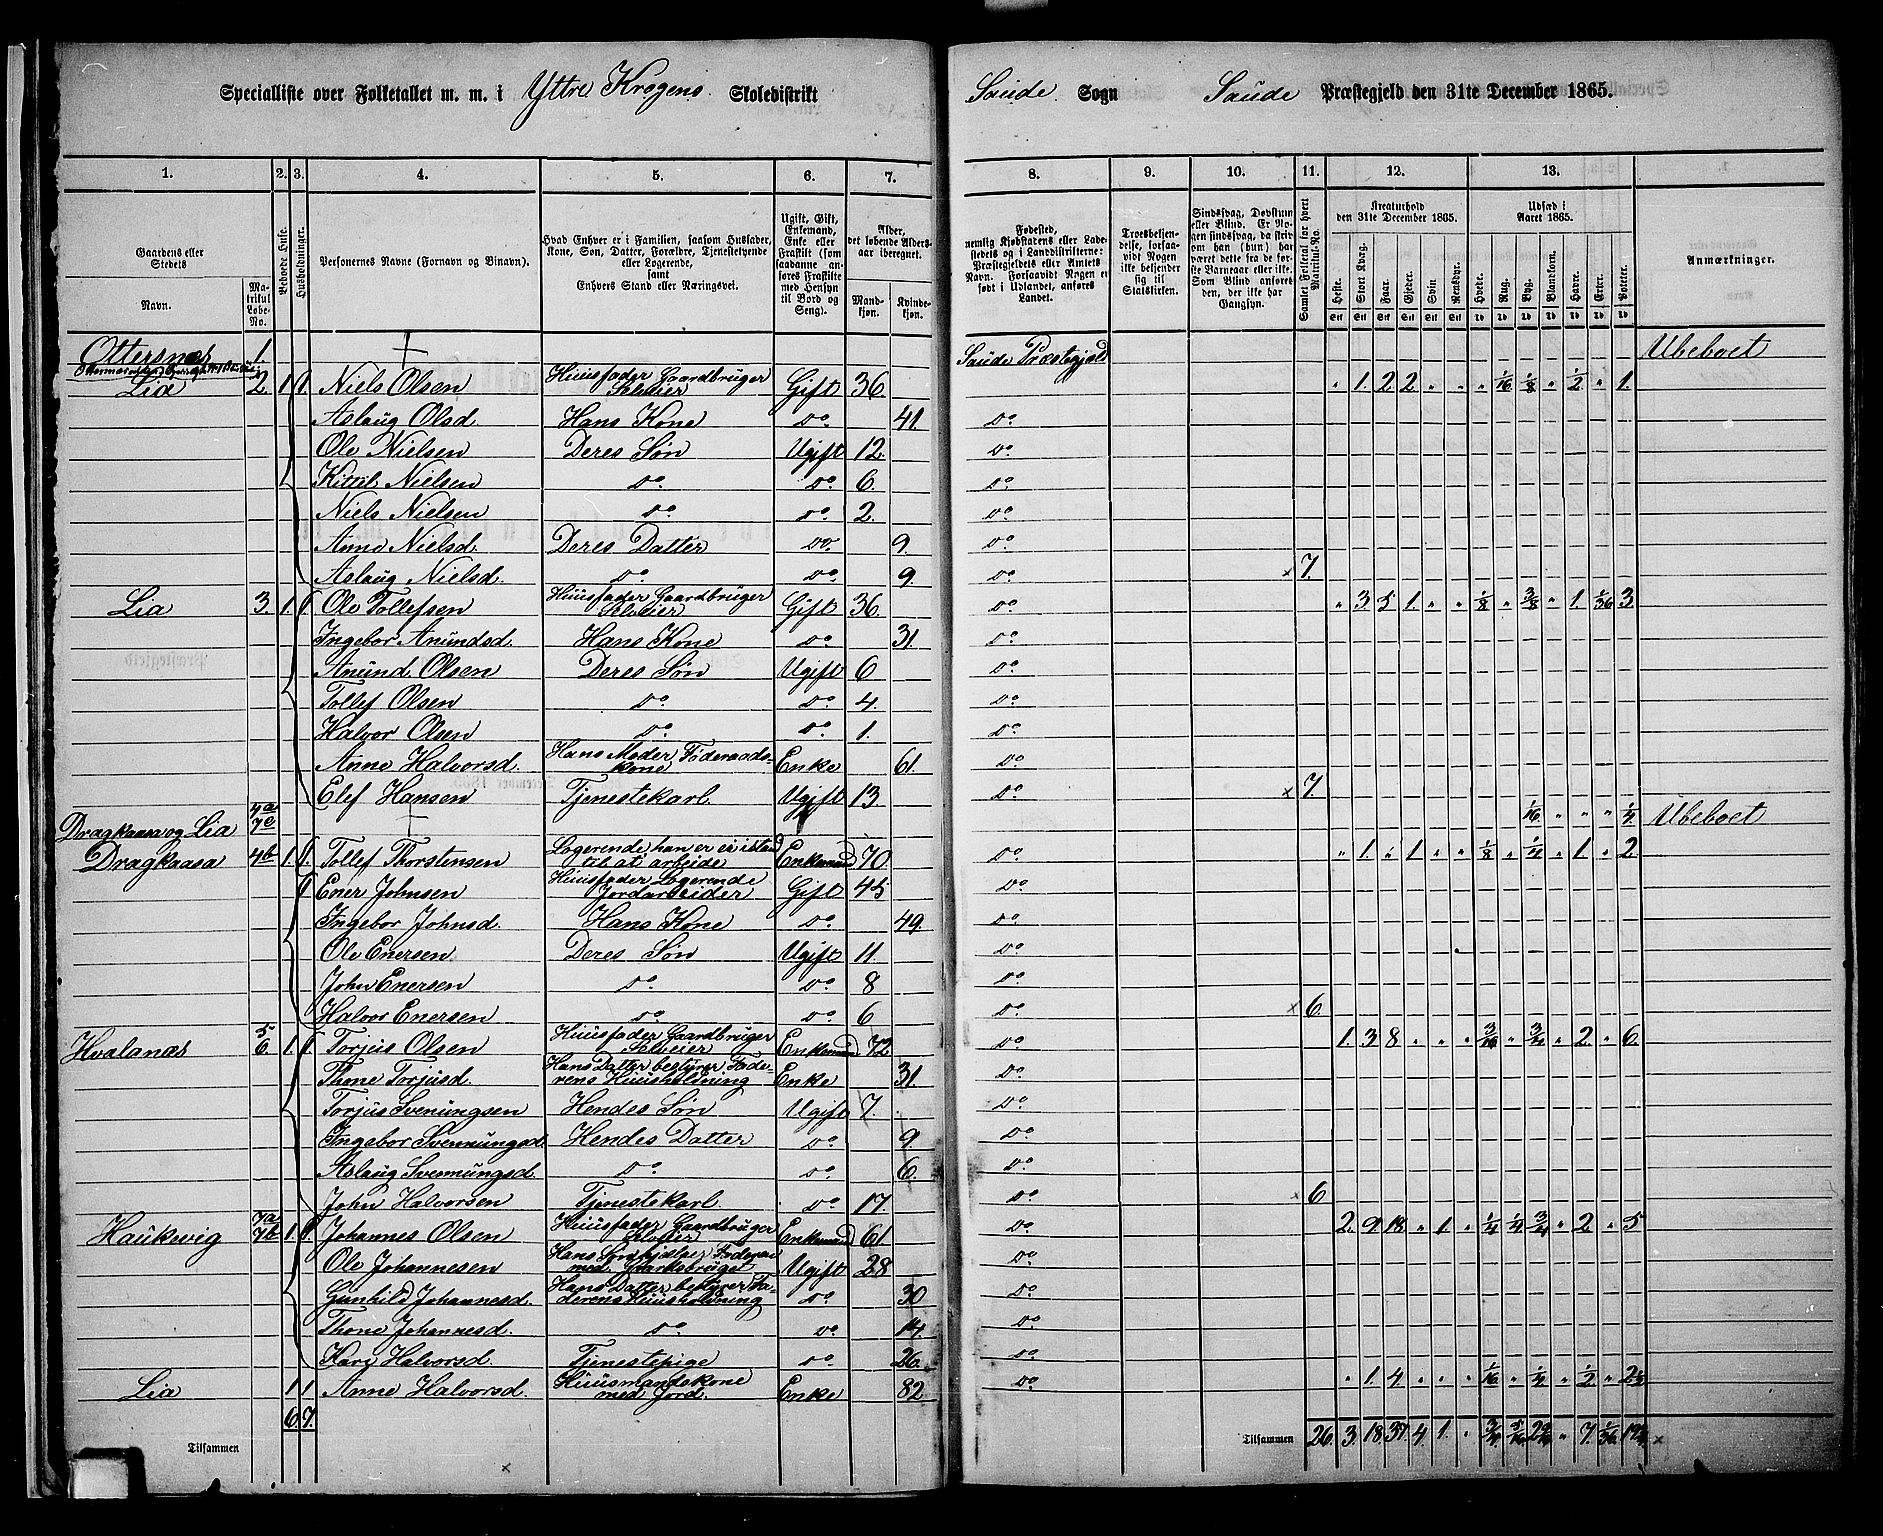 Specialliste over Folketallet m. m. i Yttre Kregens Skoledistrikt Saude Sogn Saude Præstegjeld den 31te December 1865.
1. 2. 3. 4. 5. 6. 7. 8. 9. 10. 11. 12. 13.
Gaardens eller Stedets Navn. Matrikul Løbe-No. Beboede Huse. Husholdninger. Personernes Navne (Fornavn og Binavn).
Hvad Enhver er i Familien, saasom Husfader, Kone, Søn, Datter, Forældre, Tjenestetyende eller Logerende, samt Enhvers Stand eller Næringsvei.
Ugift, Gift, Enkemand, Enke eller Fraskilt (som saadanne anføres Fraskilte med Hensyn til Bord og Seng).
Alder, det løbende Alders-aar iberegnet. Mandkjøn. Kvindekjøn.
Fødested, nemlig Kjøbstadens eller Ladestedets og i Landdistrikterne: Præstegjeldets eller Amtets Navn. Forsaavidt Nogen er født i Udlandet, anføres Landet.
Troesbekjendelse, forsaavidt Nogen ikke bekjender sig til Statskirken.
Sindssvag, Døvstum eller Blind. Er Nogen sindssvag, da skrives om han (hun) har været dette fra de første Barneaar eller ikke. Som Blind anføres den, der ikke har Gangsyn.
Samlet Folketal for hvert Matrikul-No.
Kreaturhold den 31te December 1865. Heste. Stort Kvæg. Faar. Gjeder. Svin. Rensdyr.
Udsæd i Aaret 1865. Hvede. Rug. Byg. Blandkorn. Havre. Erter. Poteter.
Anmærkninger.
Ottersnes 1 Saude Præstegjeld Ubeboet
Lia 2. 1. 1. Niels Olsen Huusfader Gaardbruger Selveier Gift 36. " 1. 2 2 " " " 1/16 1/8 " 1/2 " 1.
Aslaug Olsd. Hans Kone do. 41. do
Ole Nielsen Deres Søn Ugift 12. do
Kittil Nielsen do. do. 6. do
Niels Nielsen do. do. 2. do
Anne Nielsd. Deres Datter do. 9. do
Aslaug Nielsd. do. do. 9. do × 7.
Lia 3. 1. 1. Ole Tollefsen Huusfader Gaardbruger Selveier Gift 36. do " 3 5 1. " " 1/8 " 3/8 " 1. 1/36 3.
Ingebor Anundsd. Hans Kone do. 31. do
Anund Olsen Deres Søn Ugift 6 do
Tollef Olsen do. do. 4. do
Halvor Olsen do. do. 1. do
Anne Halvorsd. Hans Moder Føderaadskone Enke 61. do
Elef Hansen Tjenestekarl. Ugift 13 do × 7.
Dragkaasa og Lia 4a 7c 1/16 " " " 1/4 Ubeboet
Dragkaasa 4b 1. 1. Tollef Thorstensen Logerende han er ei istand til at arbeide Enkemand 70. do " 1. " 1 " " 1/8 " 1/4 " 1. " 2.
1 Ener Johnsen Huusfader Logerende Jordarbeider Gift 45 do
Ingebor Johnsd. Hans Kone do. 49. do
Ole Enersen Deres Søn Ugift 11. do
John Enersen do. do. 8 do
Halvor Enersen do. do. 6 do × 6.
Hvalanæs 5 6 1. 1. Torjus Olsen Huusfader Gaardbruger Selveier Enkemand 72 do 1. 3 8 " " " 3/16 " 3/4 " 2. " 6.
Thone Torjusd. Hans Datter bestyrer Faderens Huusholdning Enke 31. do
Torjus Svenungsen Hendes Søn Ugift 7. do
Ingebor Svennungsd. Hendes Datter do. 9. do
Aslaug Svennungsd. do. do. 6. do
John Halvorsen Tjenestekarl do. 17. do × 6
Haukevig 7a 7b 1. 1. Johannes Olsen Huusfader Gaardbruger Selveier Enkemand 61. do 2. 9 18 " 1. " 1/4 1/4 3/4 " 2. " 5
Ole Johannesen Hans Søn hjælper Faderen med Gaardsbruget Ugift 28 do
Gunhild Johannesd. Hans Datter bestyrer Faderens Huusholdning do. 30 do
Thone Johannesd. do. do. 14. do
Kari Halvorsd. Tjenestepige do. 26. do
Lia 1 1 Anne Halvorsd. Huusmandskone med Jord. Enke 82. do " 1. 4 " " " 1/16 " 1/4 " 1/2 " 2 1/2
6. 7.
Tilsammen Tilsammen 26. 3. 18. 37. 4 1. " 7.